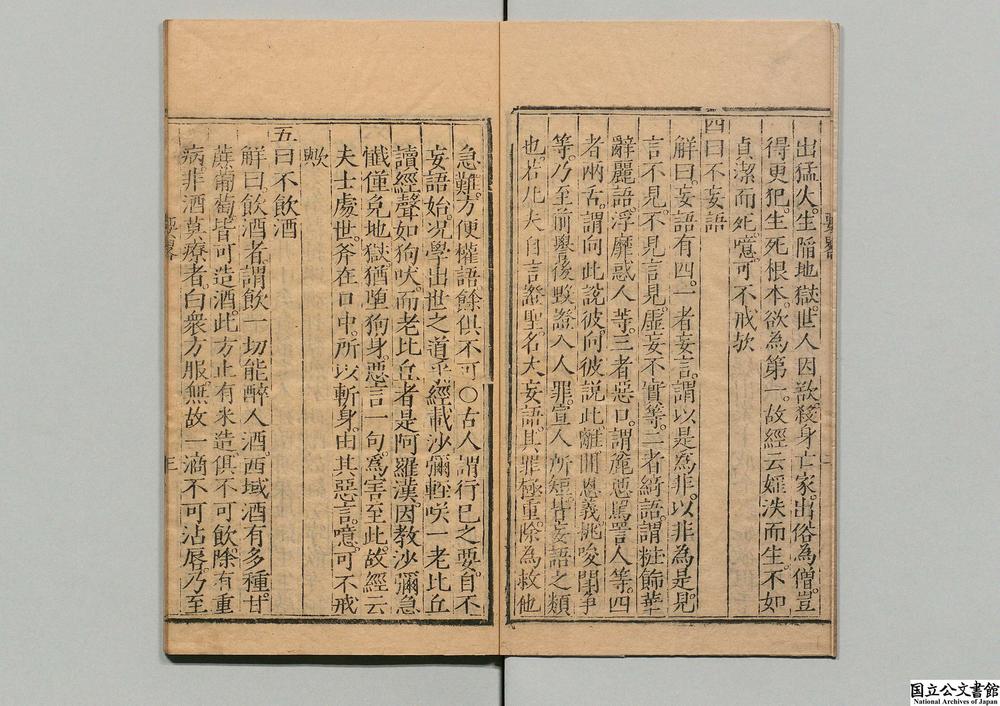 出猛火生陷地獄世人因欲殺身亡家出俗為僧豈
得更犯生死根本欲為第一故經云婬泆而生不如
貞潔而死噫可不戒歟
四曰不妄語
解曰妄語有四一者妄言謂以是為非以非為是見
言不見不見言見虛妄不實等二者綺語謂粧飾華
辭麗語浮靡惑人等三者惡口謂麁惡罵詈人等四
者兩舌謂向此說彼向彼說此離間恩義挑唆鬪爭
等乃至前譽後毀證入人罪宣人所短皆妄語之類
也若凡夫自言證聖名大妄語其罪極重除為救他
急難方便權語餘俱不可○古人謂行己之要自不
妄語始況學出世之道乎經載沙彌輕咲一老比丘
讀經聲如狗吠而老比丘者是阿羅漢因教沙彌急
懺僅免地獄猶墮狗身惡言一句為害至此故經云
夫士處世斧在口中所以斬身由其惡言噫可不戒
歟
五曰不飲酒
解曰飲酒者謂飲一切能醉人酒西域酒有多種甘
蔗葡萄皆可造酒此方止有米造俱不可飲除有重
病非酒莫療者白衆方服無故一滴不可沾唇乃至
三
国立公文書館
National Archives of Japan